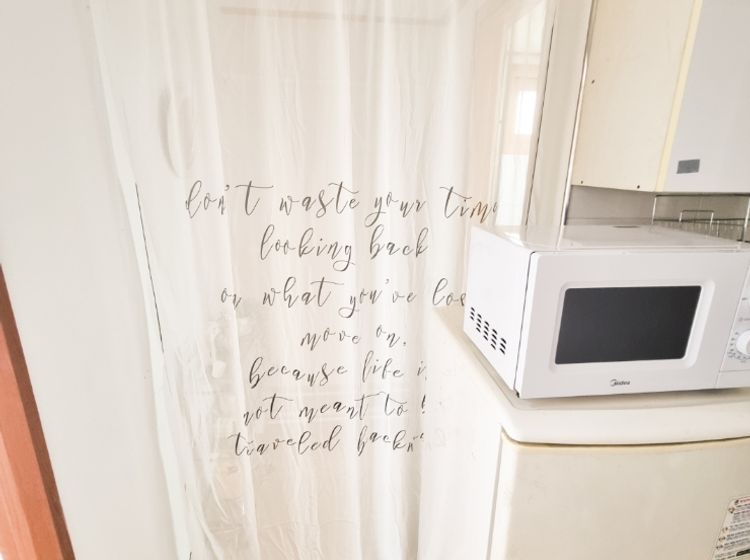 don't waste your time
looking back
on what you've los
move on,
because life is
not meant to b
traveled backw
Midea